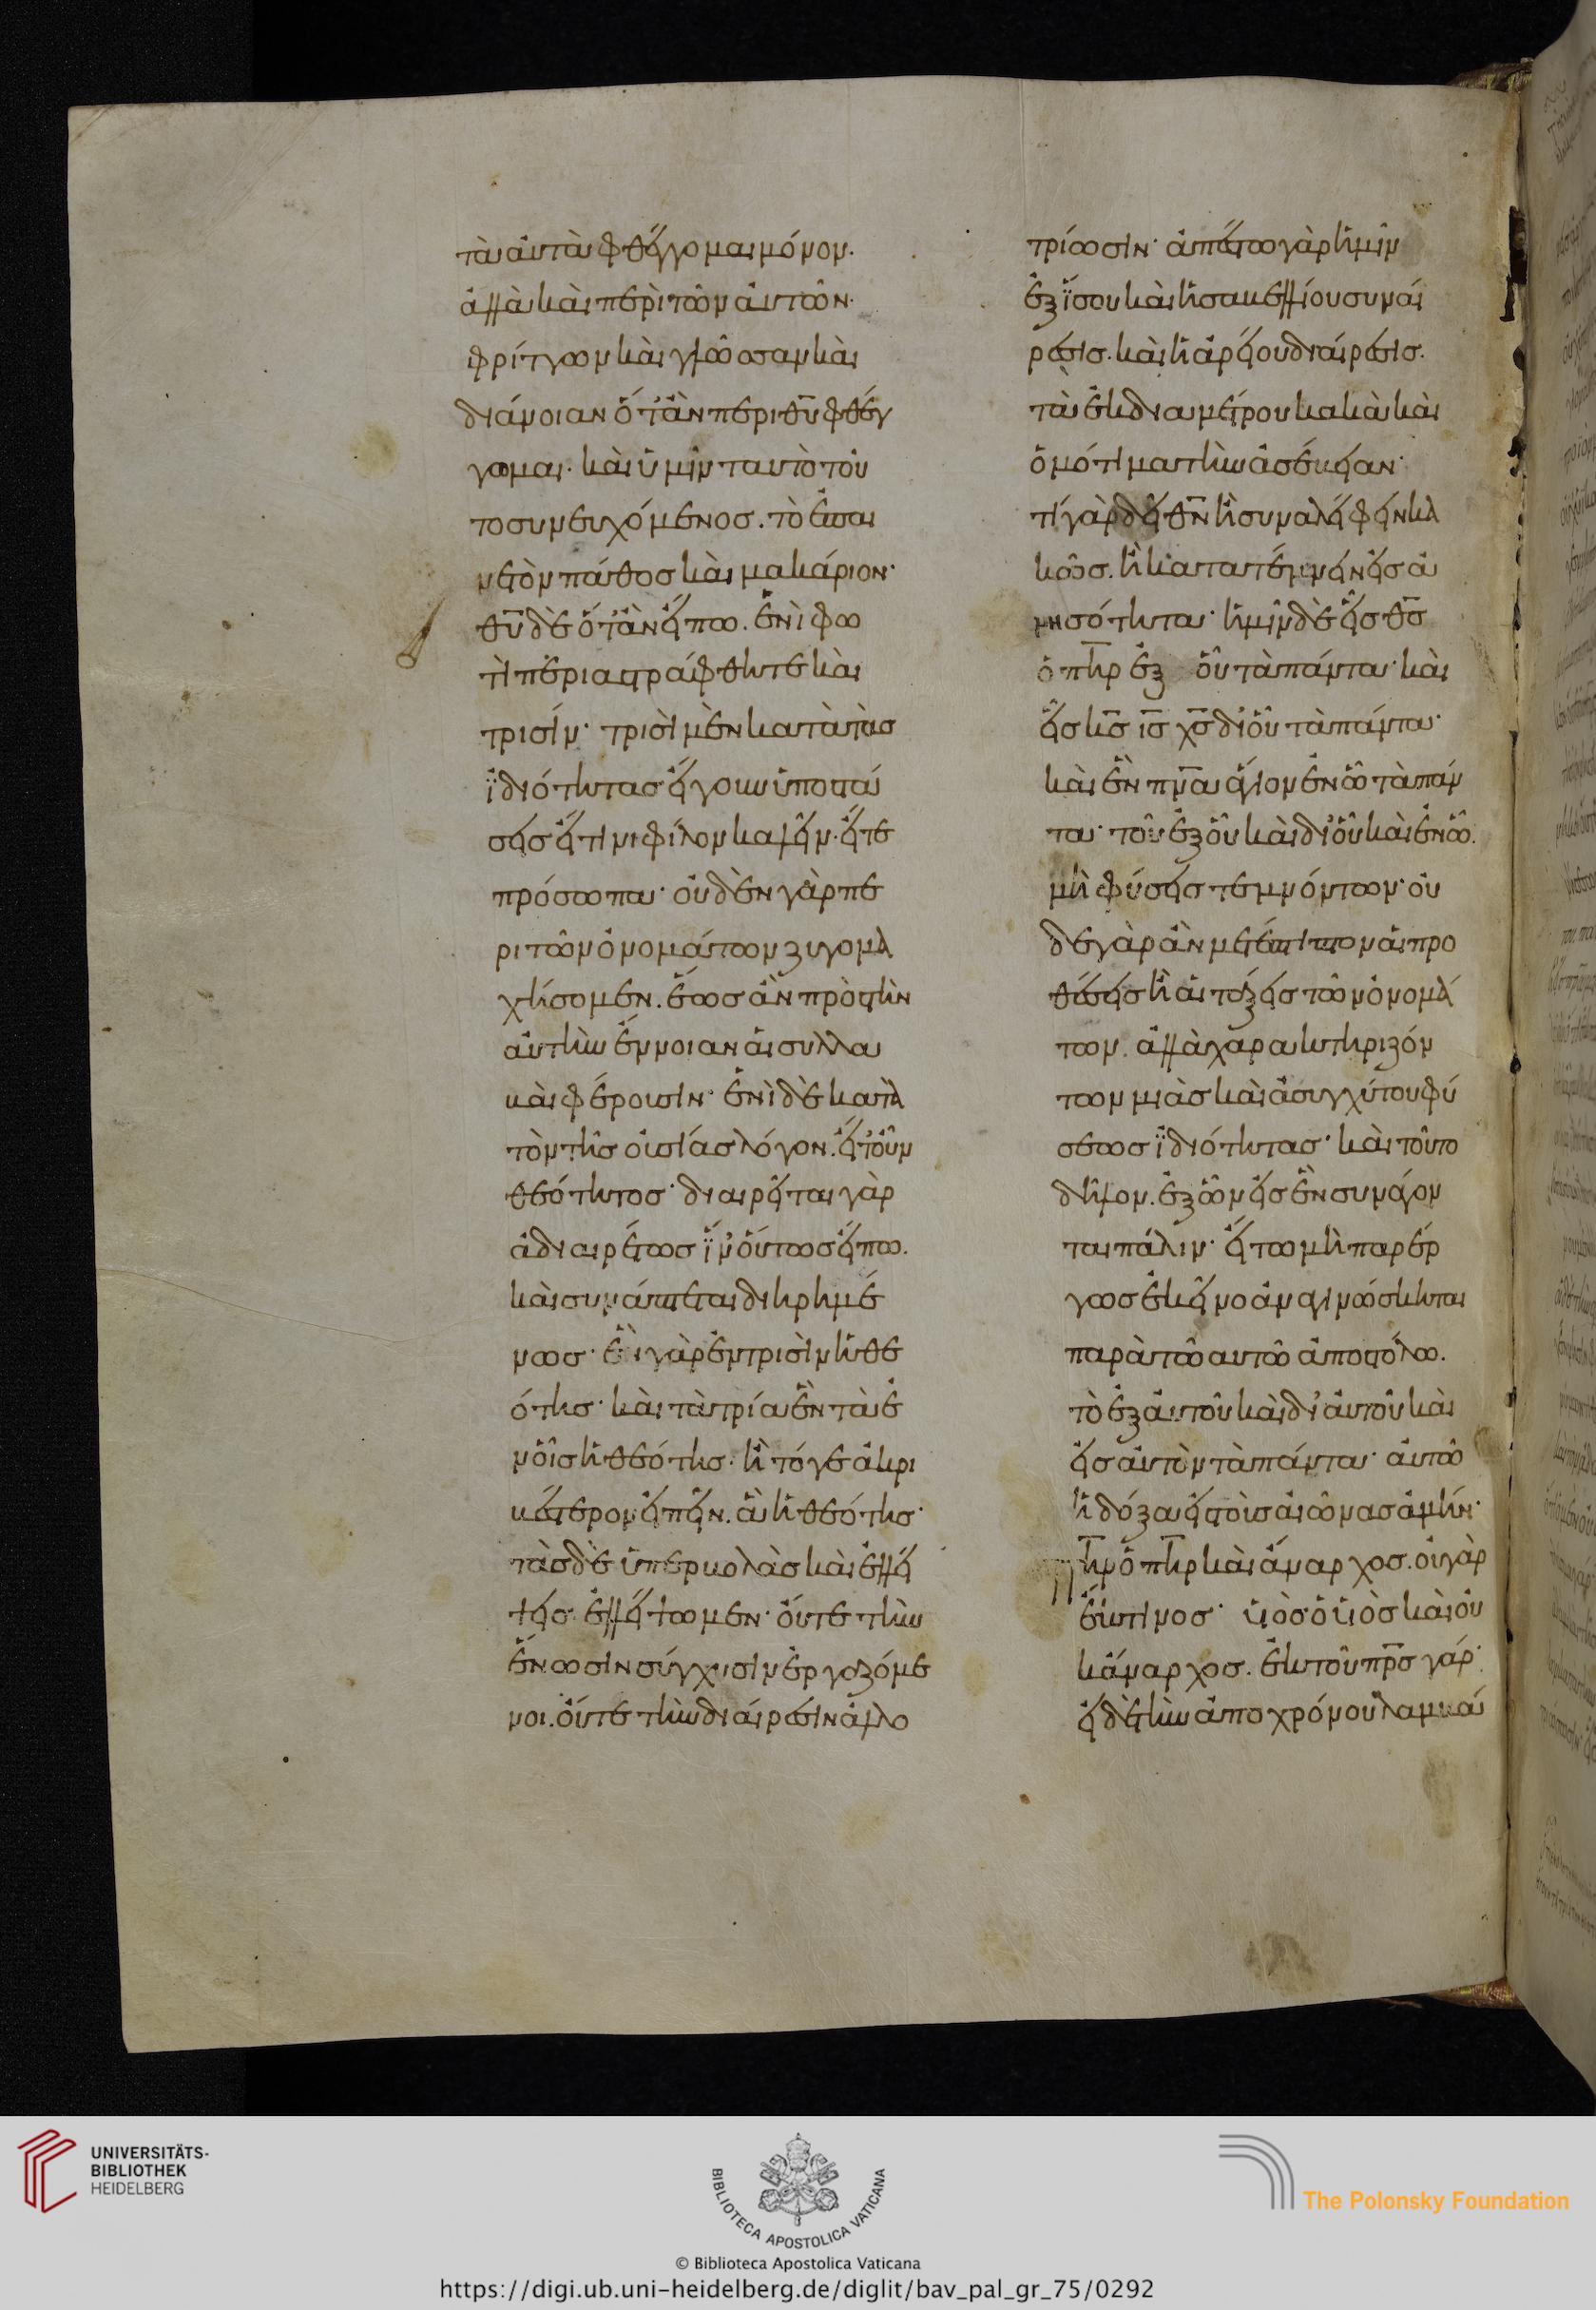 ταῦτα φθέγγομαι μόνον·
ἀλλὰ καὶ περὶ τῶν αὐτῶν·
φρίττων καὶ γλῶσσαν καὶ
διάνοιαν ὅτ' ἂν περι θ̅υ̅ φθέγ
γωμαι· καὶ ὑμῖν ταυτὸ τοῦ
το συνευχόμενος. τὸ ἐπαι
νετὸν πάθος καὶ μακάριον·
θ̅υ̅ δὲ ὅτ' ἂν εἴπω. ἑνὶ φω
τὶ περιαστράφθητε καὶ
τρισίν· τρισὶ μὲν κατὰ τὰς
ἰδιότητας εἴγουν ὑποστά
σεις εἴ τινι φίλον καλεῖν. εἴτε
πρόσωπα· οὐδὲν γὰρ πε
ρι τῶν ὀνομάτων ζυγομα
χήσομεν. ἕως ἂν πρὸς τὴν
αὐτὴν ἔννοιαν αἱ συλλα
βαὶ φέρουσιν· ἑνὶ δὲ κατὰ
τὸν τῆς οὐσίας λόγον. εἴτουν
θεότητος· διαιρεῖται γὰρ
ἀδιαιρέτως ἵν' οὕτως εἴπω.
καὶ συνάπτεται διηρημέ
νως· ἓν γὰρ ἐν τρισὶν ἡ θε
ότης· καὶ τὰ τρία ἓν τὰ ἐ
ν οἷς ἡ θεότης· ἢ τόγε ἀκρι
βέστερον εἰπεῖν. ἃ ἡ θεότης·
τὰς δὲ ὑπερβολὰς καὶ ἐλλεί
ψεις ἐλλείψωμεν· οὔτε τὴν
ἕνωσιν σύγχυσιν ἐργαζόμε
νοι. οὔτε τὴν διαίρεσιν ἀλλο
τρίωσιν· ἀπέστω γὰρ ἡμῖν
ἐξ ἴσου καὶ ἡ σαβελλίου συναί
ρεσις. καὶ ἡ ἀρείου διαίρεσις.
τὰ ἐκ διαμέτρου κακὰ καὶ
ὁμότιμα τὴν ἀσέβειαν·
τί γὰρ δεῖ θ̅ν̅ ἢ συναλείφειν κα
κῶς. ἢ κατατέμνειν εἰς ἀ
νισότητα· ἡμῖν δὲ εἷς θ̅ς̅
ὁ π̅η̅ρ̅ ἐξ οὗ τὰ πάντα· καὶ
εἷς κ̅ς̅ ι̅ς̅ χ̅ς̅ δι' οὗ τὰ πάντα·
καὶ ἓν π̅ν̅α̅ ἅγιον ἐν ᾧ τὰ πάν
τα· τοῦ ἐξ οὗ καὶ δι' οὗ καὶ ἐν ᾧ.
μὴ φύσεις τεμνόντων· οὐ
δε γὰρ ἂν μετέπιπτον αἱ προ
θέσεις ἢ αἱ τάξεις τῶν ὀνομά
των. ἀλλὰ χαρακτηριζόν
των μιᾶς καὶ ἀσυγχύτου φύ
σεως ἰδιότητας· καὶ τοῦτο
δῆλον. ἐξ ὧν εἰς ἓν συνάγον
ται πάλιν· εἴ τω μὴ παρέρ
γως ἐκεῖνο ἀναγινώσκηται
παρὰ τῶ αυτῶ ἀποστόλω.
τὸ ἐξ αὐτοῦ καὶ δι' αὐτοῦ καὶ
εἰς αὐτὸν τὰ πάντα· αὐτῶ
ἡ δόξα εἰς τοὺς αἰῶνας ἀμήν·
π̅η̅ρ̅ ὁ π̅η̅ρ̅ καὶ ἄναρχος. οὐ γὰρ
ἔκ τινος· υἱὸς ὁ υἱὸς καὶ οὐ
κ ἄναρχος. ἐκ τοῦ π̅ρ̅ς̅ γάρ·
εἰ δὲ τὴν ἀπο χρόνου λαμβά
UNIVERSITÄTS-
BIBLIOTHEK
HEIDELBERG
BIBLIOTECA APOSTOLICA VATICANA
The Polonsky Foundation
© Biblioteca Apostolica Vaticana
https://digi.ub.uni-heidelberg.de/diglit/bav_pal_gr_75/0292